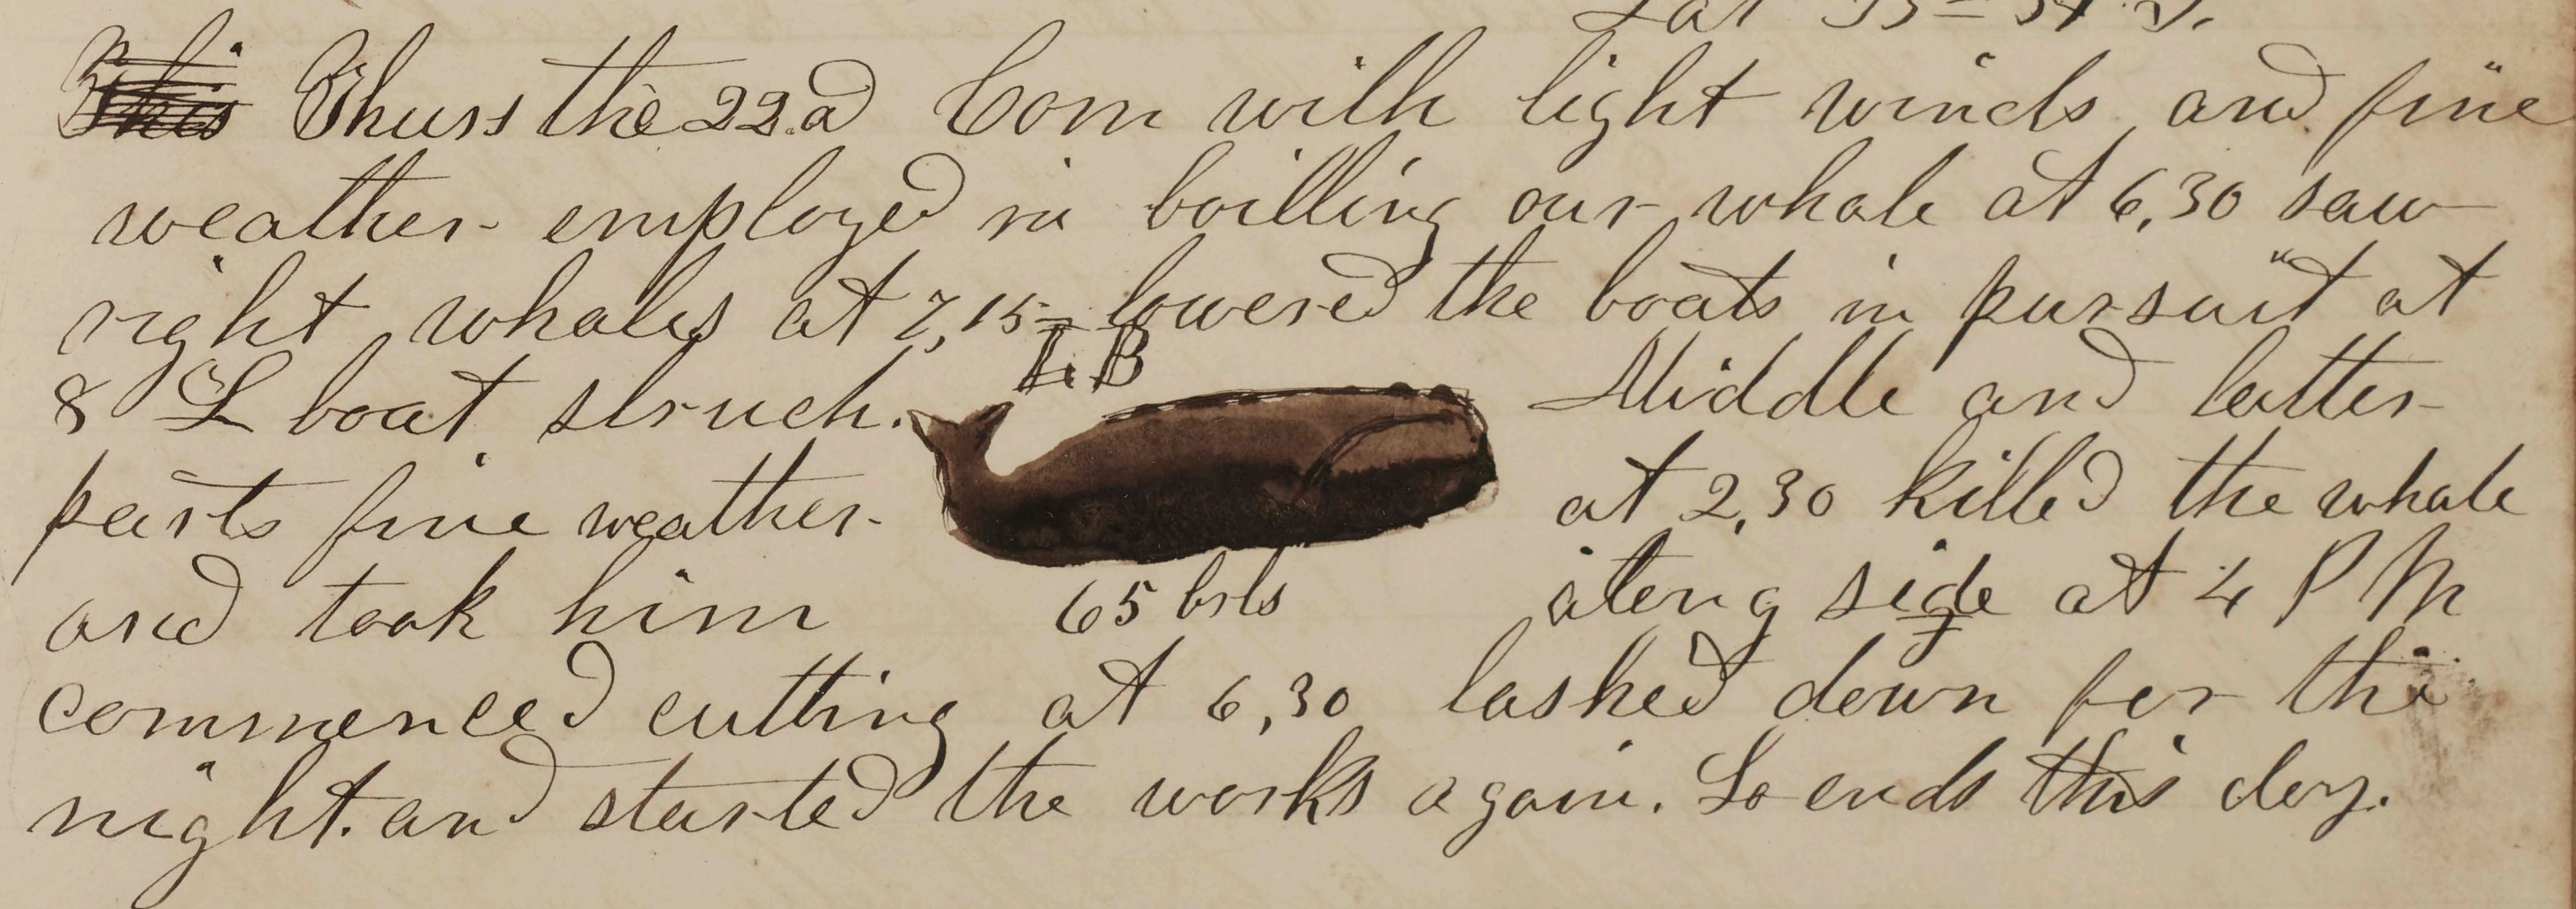 Lat 35 = 34 S.
This Thurs the 22.d Com with light winds and fine
weather employed in boilling our whale at 6,30 saw
right whales at 7,15 lowered the boats in pursuit at
L B
8 L boat struck. Middle and latter
parts fine weather at 2,30 killed the whale
and took him 65 brls along side at 4 P M
commenced cutting at 6,30 lashed down for the
night. and started the works again. So ends this day.